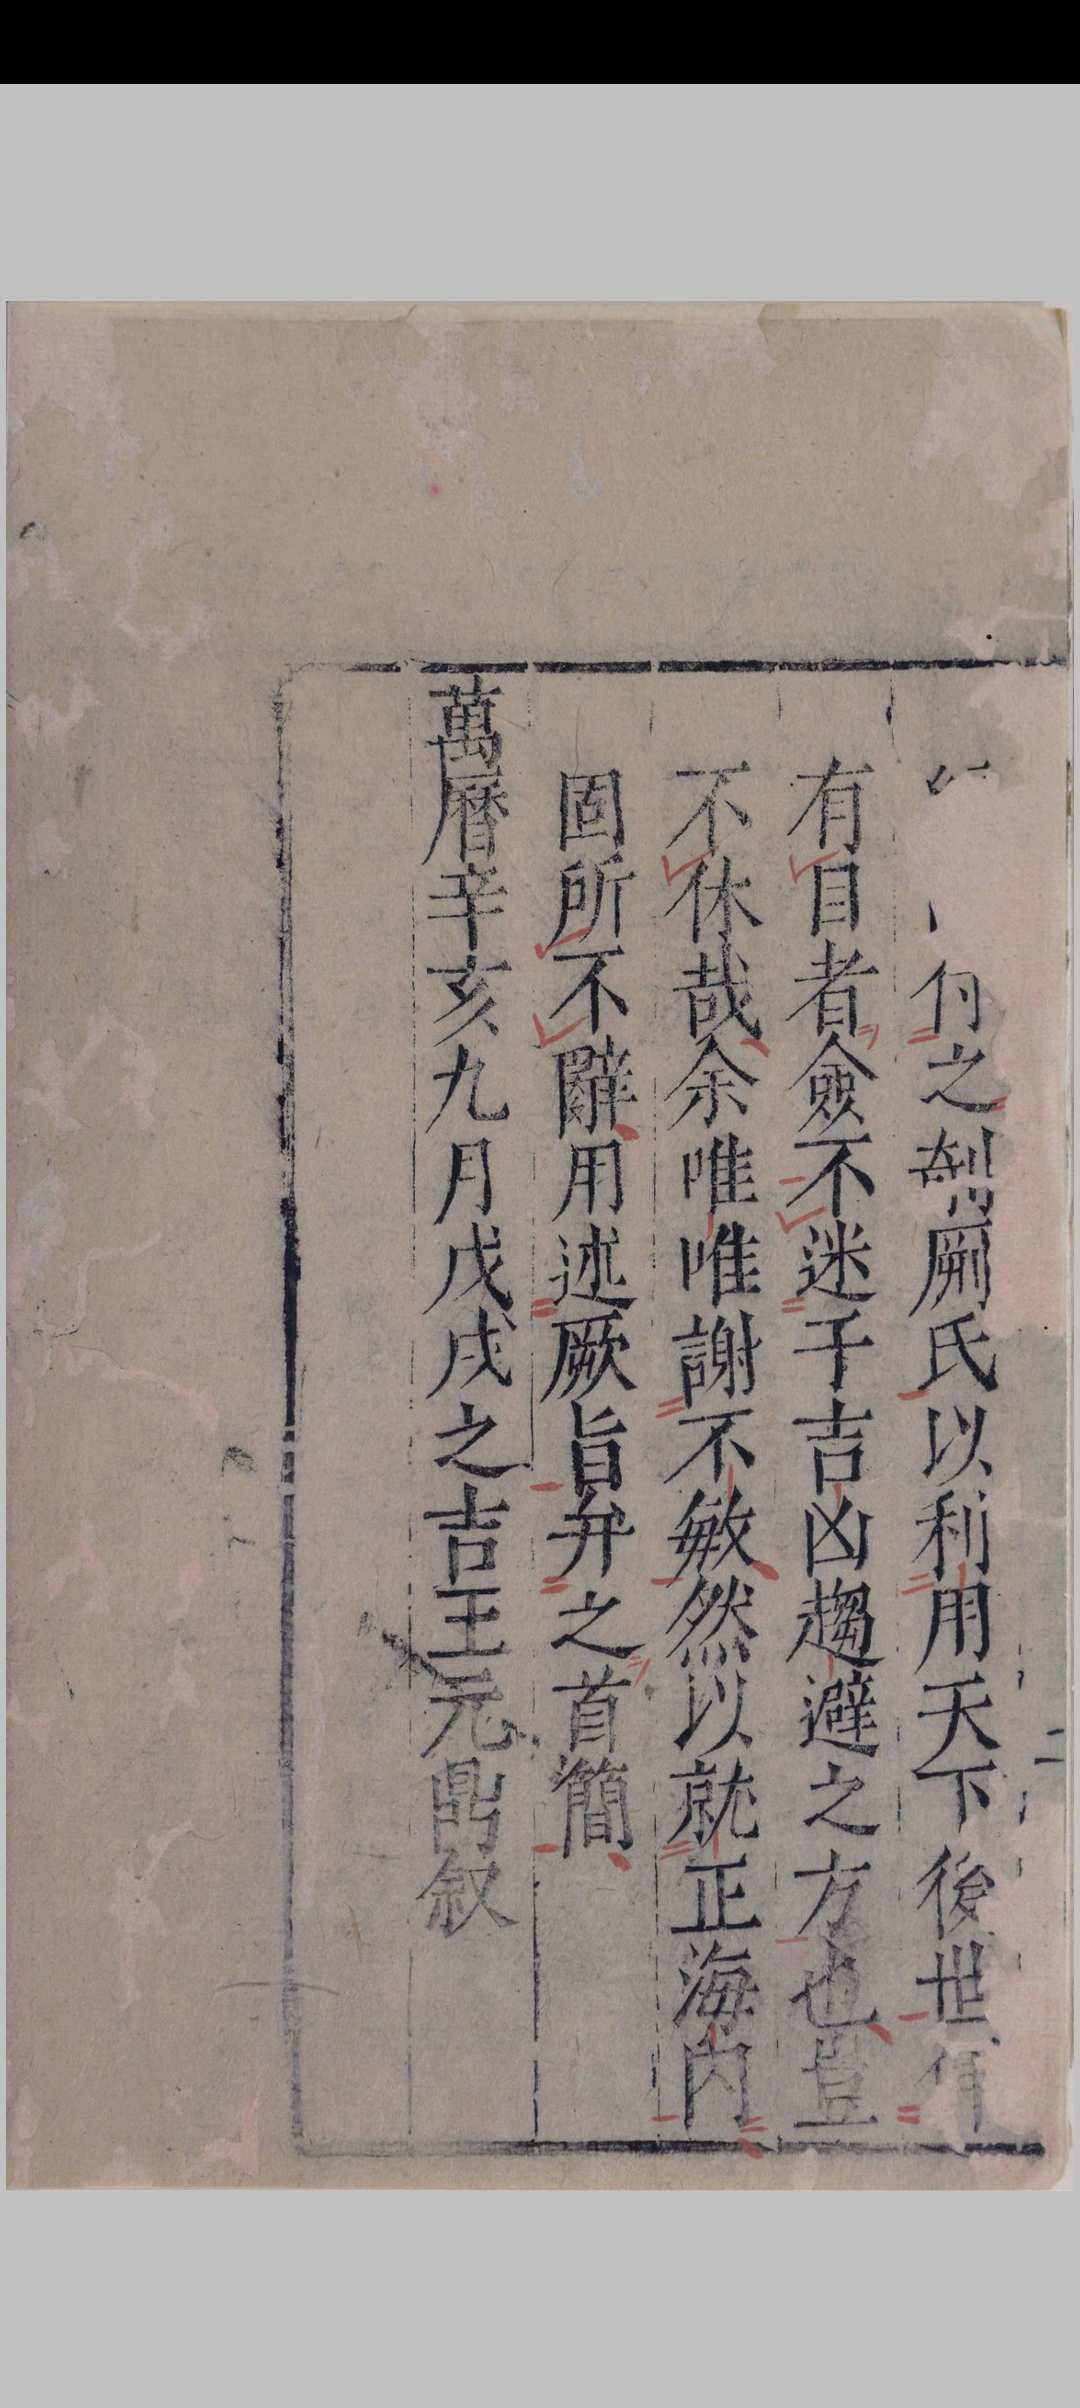 之剞劂氏以利用天下後世
有目者僉不迷于吉凶趨避之方也豈
不休哉余唯唯謝不敏然以就正海内
固所不辭用述厥旨弁之首簡
萬曆辛亥九月戊戌之吉王元鼎叙
二